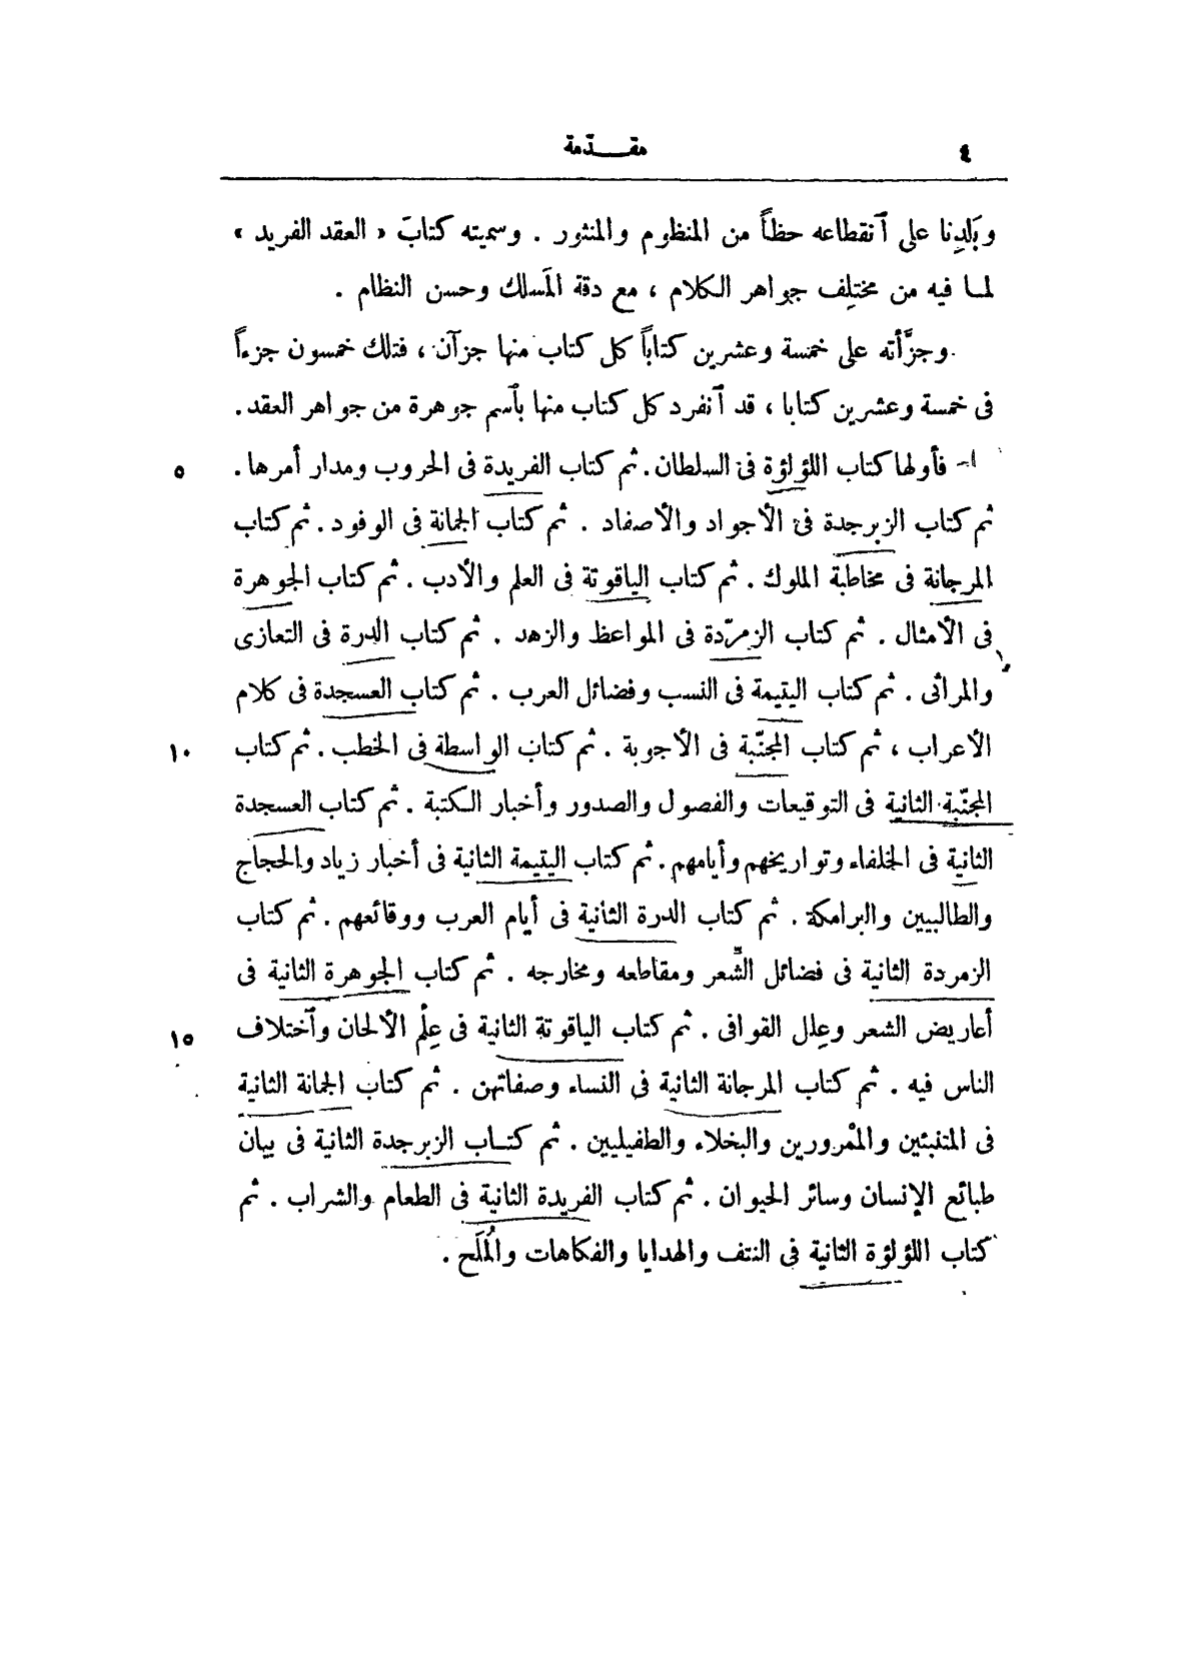 ٤
مقـــدّمة
وبَلدِنا على ٱنقطاعه حظاً من المنظوم والمنثور . وسميته كتابَ « العقد الفريد »
لمـا فيه من مختلِف جواهر الكلام ، مع دقة المَسلك وحسن النظام .
وجزَّأته على خمسة وعشرين كتاباً كل كتاب منها جزآن ، فتلك خمسون جزءاً
فى خمسة وعشرين كتابا ، قد ٱنفرد كل كتاب منها بٱسم جوهرة من جواهر العقد .
١- فأولها كتاب اللؤلؤة فى السلطان . ثم كتاب الفريدة فى الحروب ومدار أمرها . ٥
ثم كتاب الزبرجدة فى الأجواد والأصفاد . ثم كتاب الجمانة فى الوفود . ثم كتاب
المرجانة فى مخاطبة الملوك . ثم كتاب الياقوتة فى العلم والأدب . ثم كتاب الجوهرة
فى الأمثال . ثم كتاب الزمرّدة فى المواعظ والزهد . ثم كتاب الدرة فى التعازى
والمراثى . ثم كتاب اليتيمة فى النسب وفضائل العرب . ثم كتاب العسجدة فى كلام
الأعراب ، ثم كتاب المجنّبة فى الأجوبة . ثم كتاب الواسطة فى الخطب . ثم كتاب ١٠
المجنّبة الثانية فى التوقيعات والفصول والصدور وأخبار الكتبة . ثم كتاب العسجدة
الثانية فى الخلفاء وتواريخهم وأيامهم . ثم كتاب اليتيمة الثانية فى أخبار زياد والحجاج
والطالبيين والبرامكة . ثم كتاب الدرة الثانية فى أيام العرب ووقائعهم . ثم كتاب
الزمردة الثانية فى فضائل الشِّعر ومقاطعه ومخارجه . ثم كتاب الجوهرة الثانية فى
أعاريض الشعر وعِلل القوافى . ثم كتاب الياقوتة الثانية فى عِلْم الألحان وٱختلاف ١٥
الناس فيه . ثم كتاب المرجانة الثانية فى النساء وصفاتهن . ثم كتاب الجمانة الثانية
فى المتنبئين والممْرورين والبخلاء والطفيليين . ثم كتــاب الزبرجدة الثانية فى بيان
طبائع الإنسان وسائر الحيوان . ثم كتاب الفريدة الثانية فى الطعام والشراب . ثم
كتاب اللؤلؤة الثانية فى النتف والهدايا والفكاهات والمُلَح .